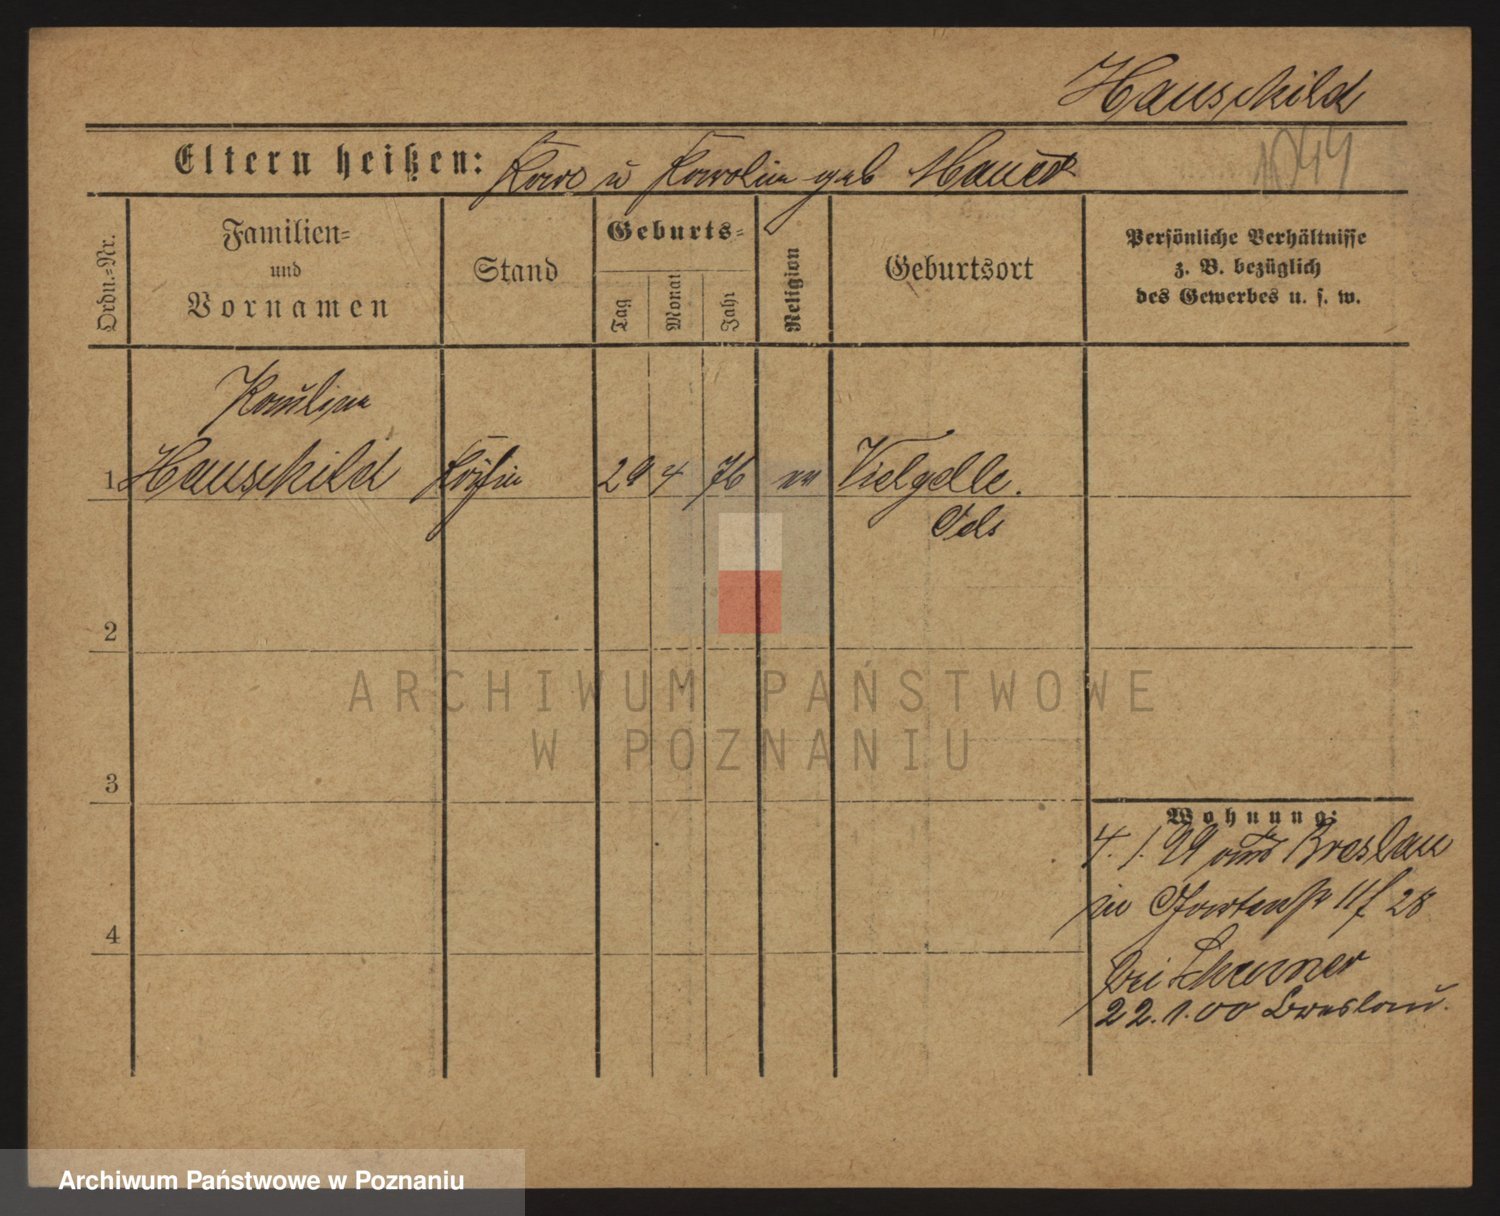 Hauschild
1044
Eltern heißen: Karl u Karoline geb Hauer
Ordn.-Nr.
Familien=
und
Vornamen
Stand
Geburts=
Tag
Monat
Jahr
Religion
Geburtsort
Persönliche Verhältnisse
z. B. bezüglich
des Gewerbes u. s. w.
Pauline
1 Hauschild Köchin 29 4 76 ev Vielguth.
Oels
2
3
4
Wohnung:
4.1.99 aus Breslau
in Gartenstr 28
bei
22.1.00 Breslau.
ARCHIWUM PAŃSTWOWE
W POZNANIU
Archiwum Państwowe w Poznaniu